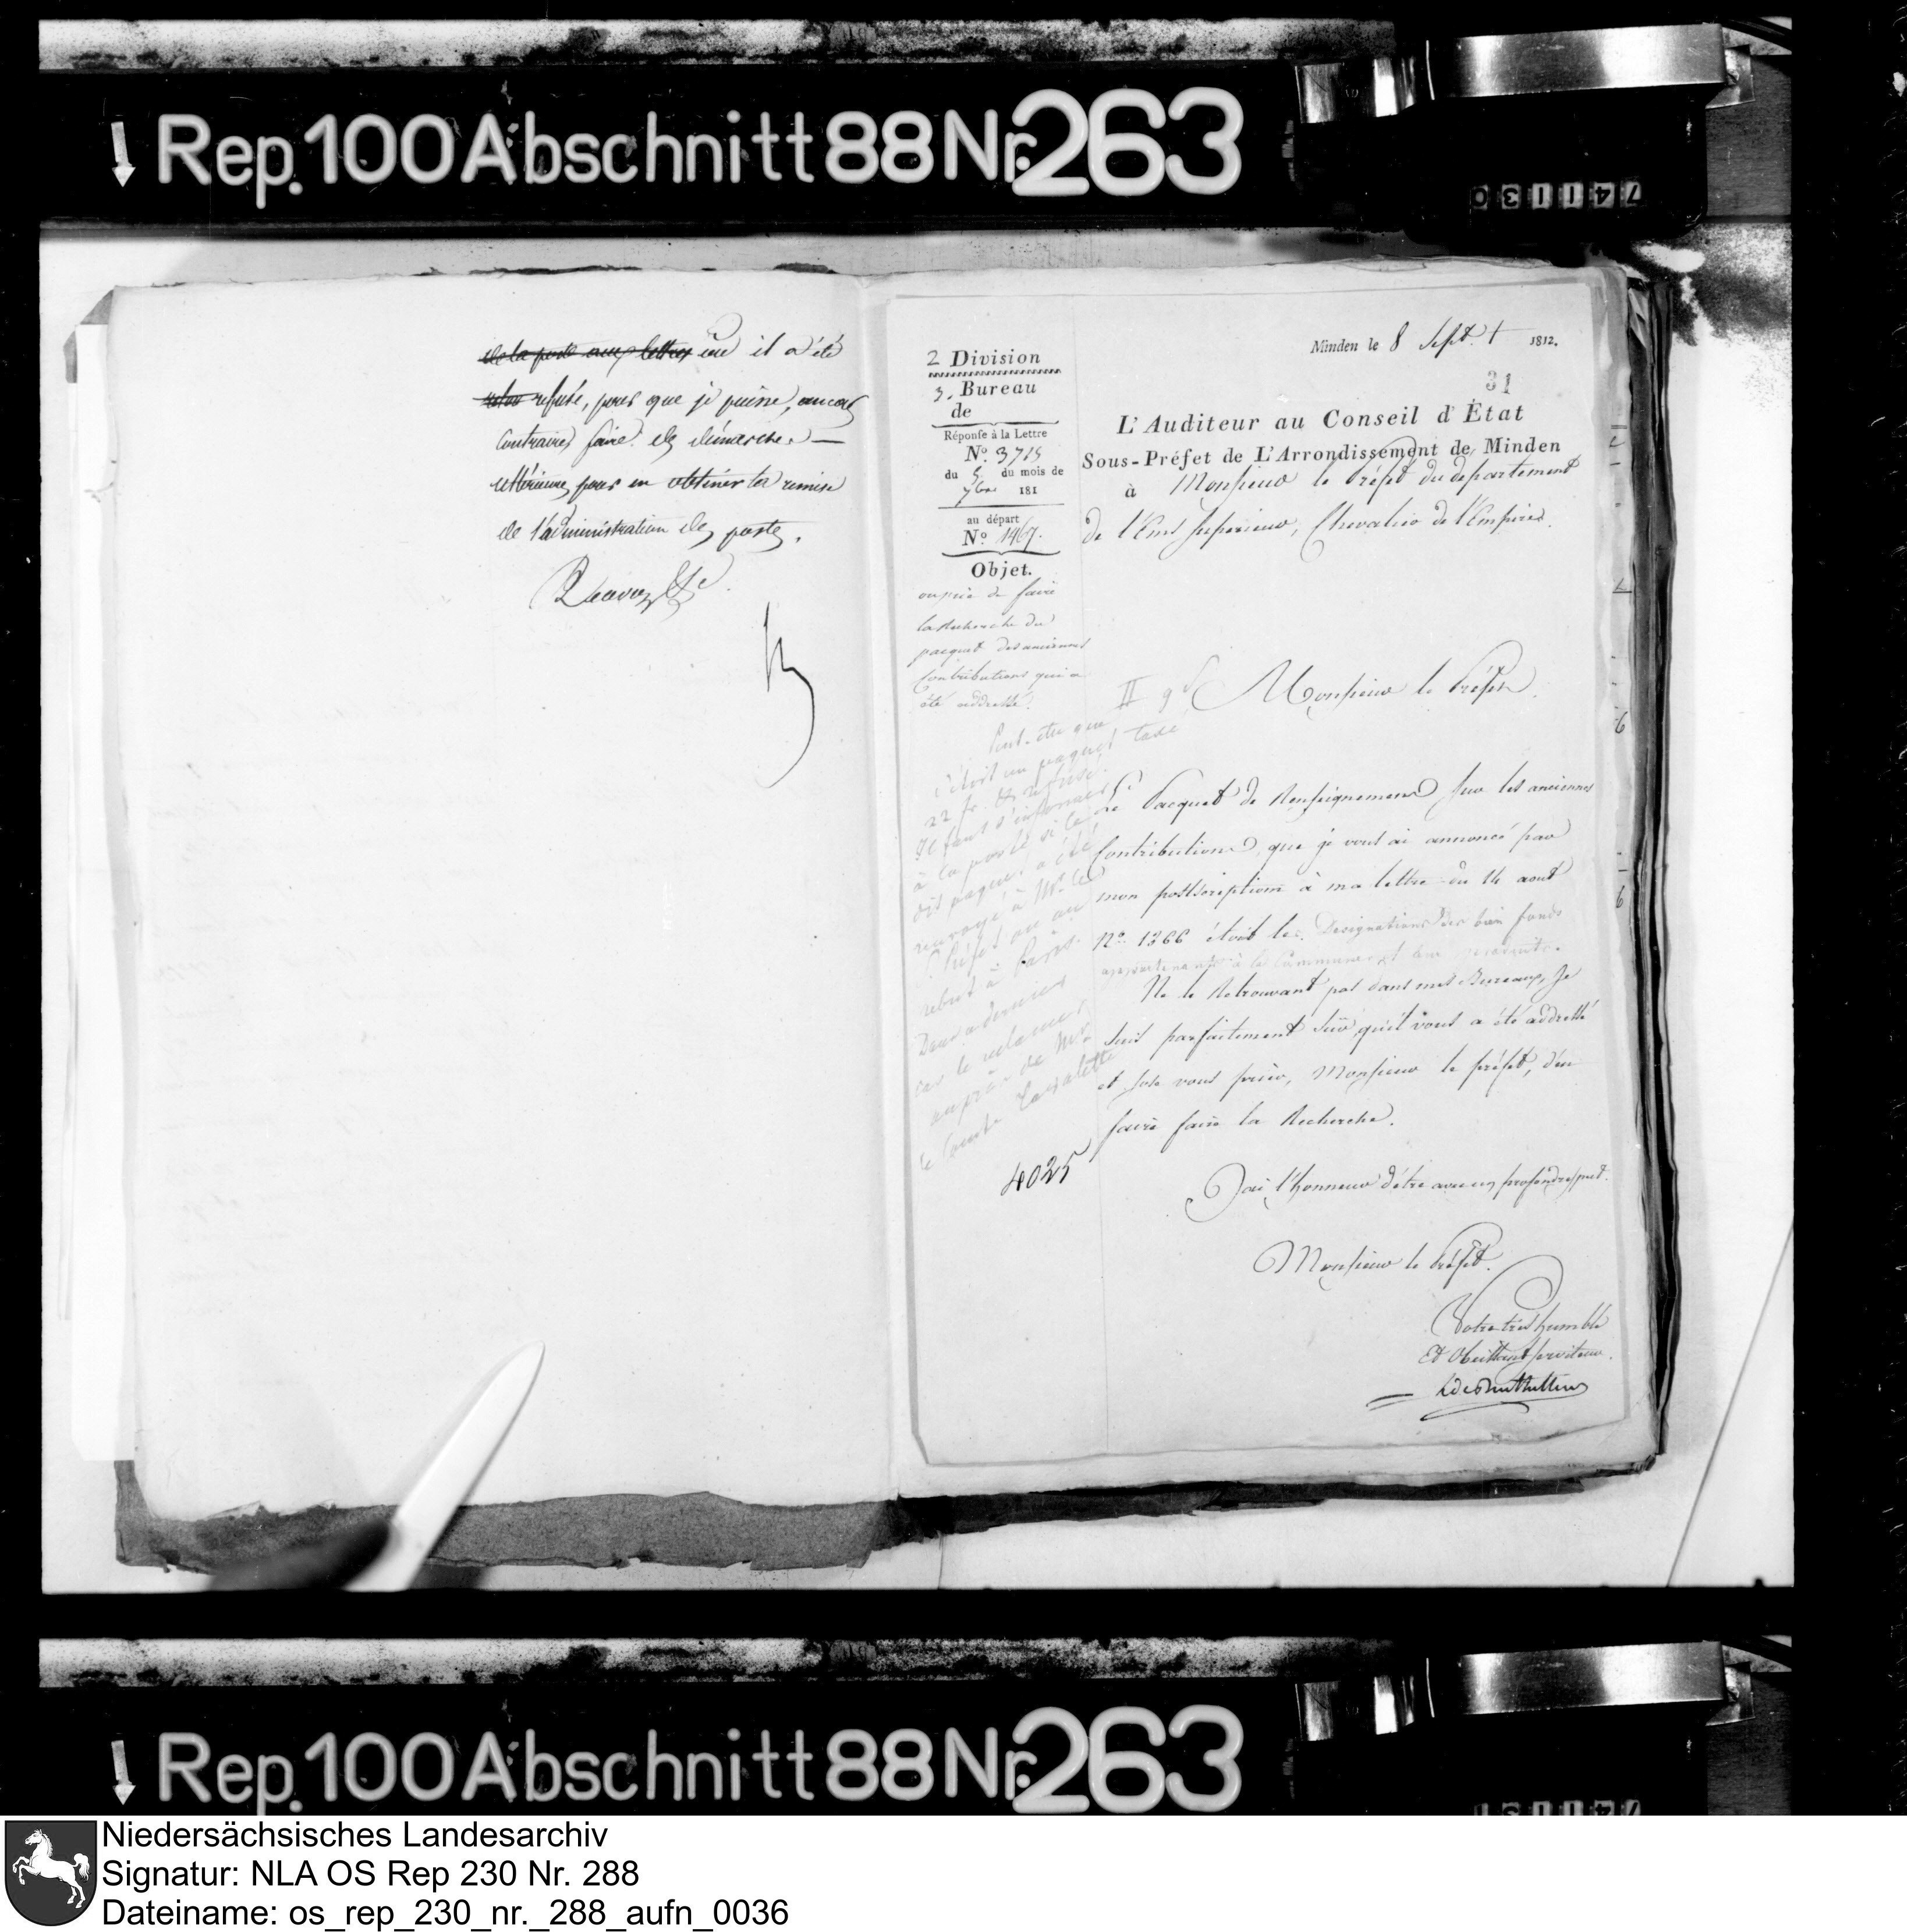 Rep. 100 Abschnitt 88 Nr. 263
741130
de la poste aux lettres ou il a été
refusé, pour que je puisse, au cas
contraire, faire des démarches
ultérieures pour en obtenir la remise
de l'administration des postes.
2 Division
3. Bureau
de
Réponse à la Lettre
No. 3715
du 5. du mois de
7bre 181
au départ
No. 1467.
Objet.
on prie de faire
la Recherche du
pacquet des anciennes
Contributions qui a
été addressé.
Peut-etre que
c'étoit un paquet taxé
22 fr. et refusé.
Il faut s'informer
à la poste si le
dit paquet a été
renvoyé à Mr. le
Préfet ou au
rebut à Paris.
Dans ce dernier
cas le reclamer
auprès de Mr.
le Comte Lavalette
4025
Minden le 8 Sept. 1812.
31
L'Auditeur au Conseil d'État
Sous-Préfet de L'Arrondissement de Minden
à Monsieur le Préfet du departement
de l'Ems Superieur, Chevalier de l'Empire.
II
Monsieur le Préfet.
Le Pacquet de Renseignemens sur les anciennes
Contributions, que je vous ai annoncé par
mon postscriptum à ma lettre du 14 aout
No. 1366 étoit les Designations des bien fonds
appartenants à la Commune et
Ne le Retrouvant pas dans mes Bureaux, Je
suis parfaitement sûr, qu'il vous a été addressé
et j'ose vous prier, Monsieur le préfet, d'en
faire faire la Recherche.
J'ai l'honneur d'être avec un profond respect.
Monsieur le Préfet.
Votre très humble
Et Obeissant serviteur.
↓ Rep. 100 Abschnitt 88 Nr. 263
Niedersächsisches Landesarchiv
Signatur: NLA OS Rep 230 Nr. 288
Dateiname: os_rep_230_nr._288_aufn_0036